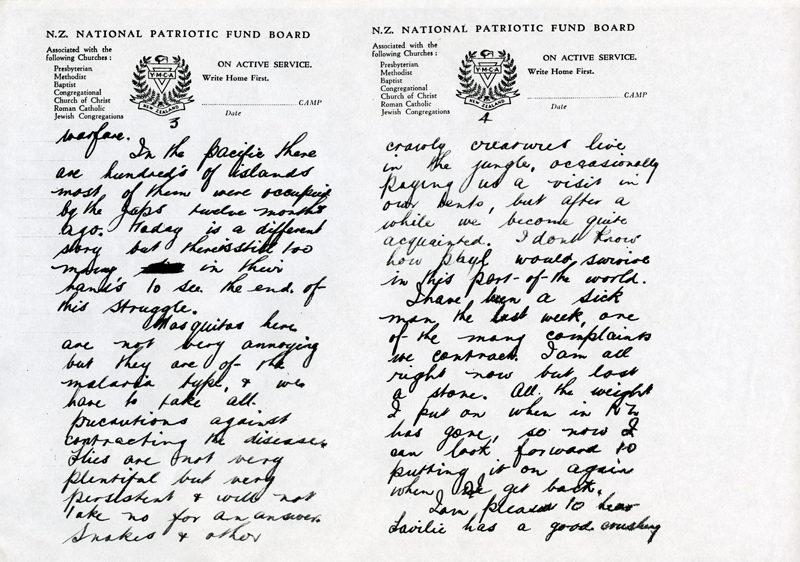 N.Z. NATIONAL PATRIOTIC FUND BOARD
Associated with the
following Churches :
Presbyterian
Methodist
Baptist
Congregational
Church of Christ
Roman Catholic
Jewish Congregations
Y.M.C.A
NEW ZEALAND
ON ACTIVE SERVICE.
Write Home First.
CAMP
Date
3
warfare.
In the pacific there
are hundred's of islands
most of them were
by the Japs twelve months
ago. Today is a different
story but there is still too
many in their
hands to see the end of
this struggle.
Mosquitos here
are not very annoying
but they are of the
malaria type, & we
have to take all
precautions against
contracting the disease.
Flies are not very
plentiful but very
persistent & will not
take no for an answer.
Snakes & other
N.Z. NATIONAL PATRIOTIC FUND BOARD
Associated with the
following Churches :
Presbyterian
Methodist
Baptist
Congregational
Church of Christ
Roman Catholic
Jewish Congregations
Y.M.C.A
NEW ZEALAND
ON ACTIVE SERVICE.
Write Home First.
CAMP
Date
4
crawly creatures live
in the jungle, occasionally
paying us a visit in
our tents, but after a
while we become quite
acquainted. I dont know
how would survive
in this part-of-the world.
I have been a sick
man the last week, one
of the many complaints
we contract. I am all
right now but lost
a stone. All the weight
I put on when in N.Z
has gone, so now I
can look forward to
putting it on again
when I get back.
I am pleased to hear
has a good crushing